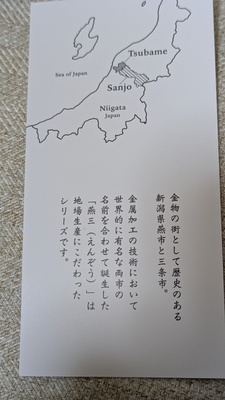 Tsubame
Sea of Japan
Sanjo
Niigata
Japan
金物の街として歴史のある
新潟県燕市と三条市。
金属加工の技術において
世界的に有名な両市の
名前を合わせて誕生した
「燕三（えんぞう）」は
地場生産にこだわった
シリーズです。